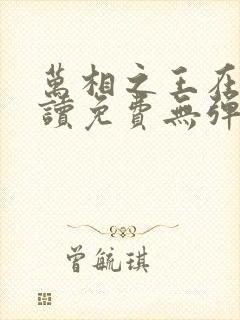 萬相之王在
讀免費無彈
曾毓琪